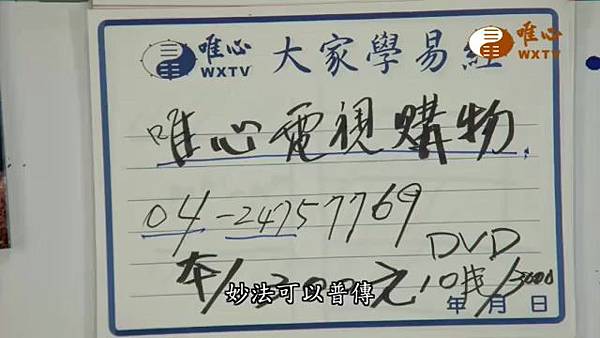 唯心 WXTV 大家學易經
唯心 WXTV
唯心電視購物
04-24757769
DVD
本/3200元 10片/3600
妙法可以普傳
年 月 日